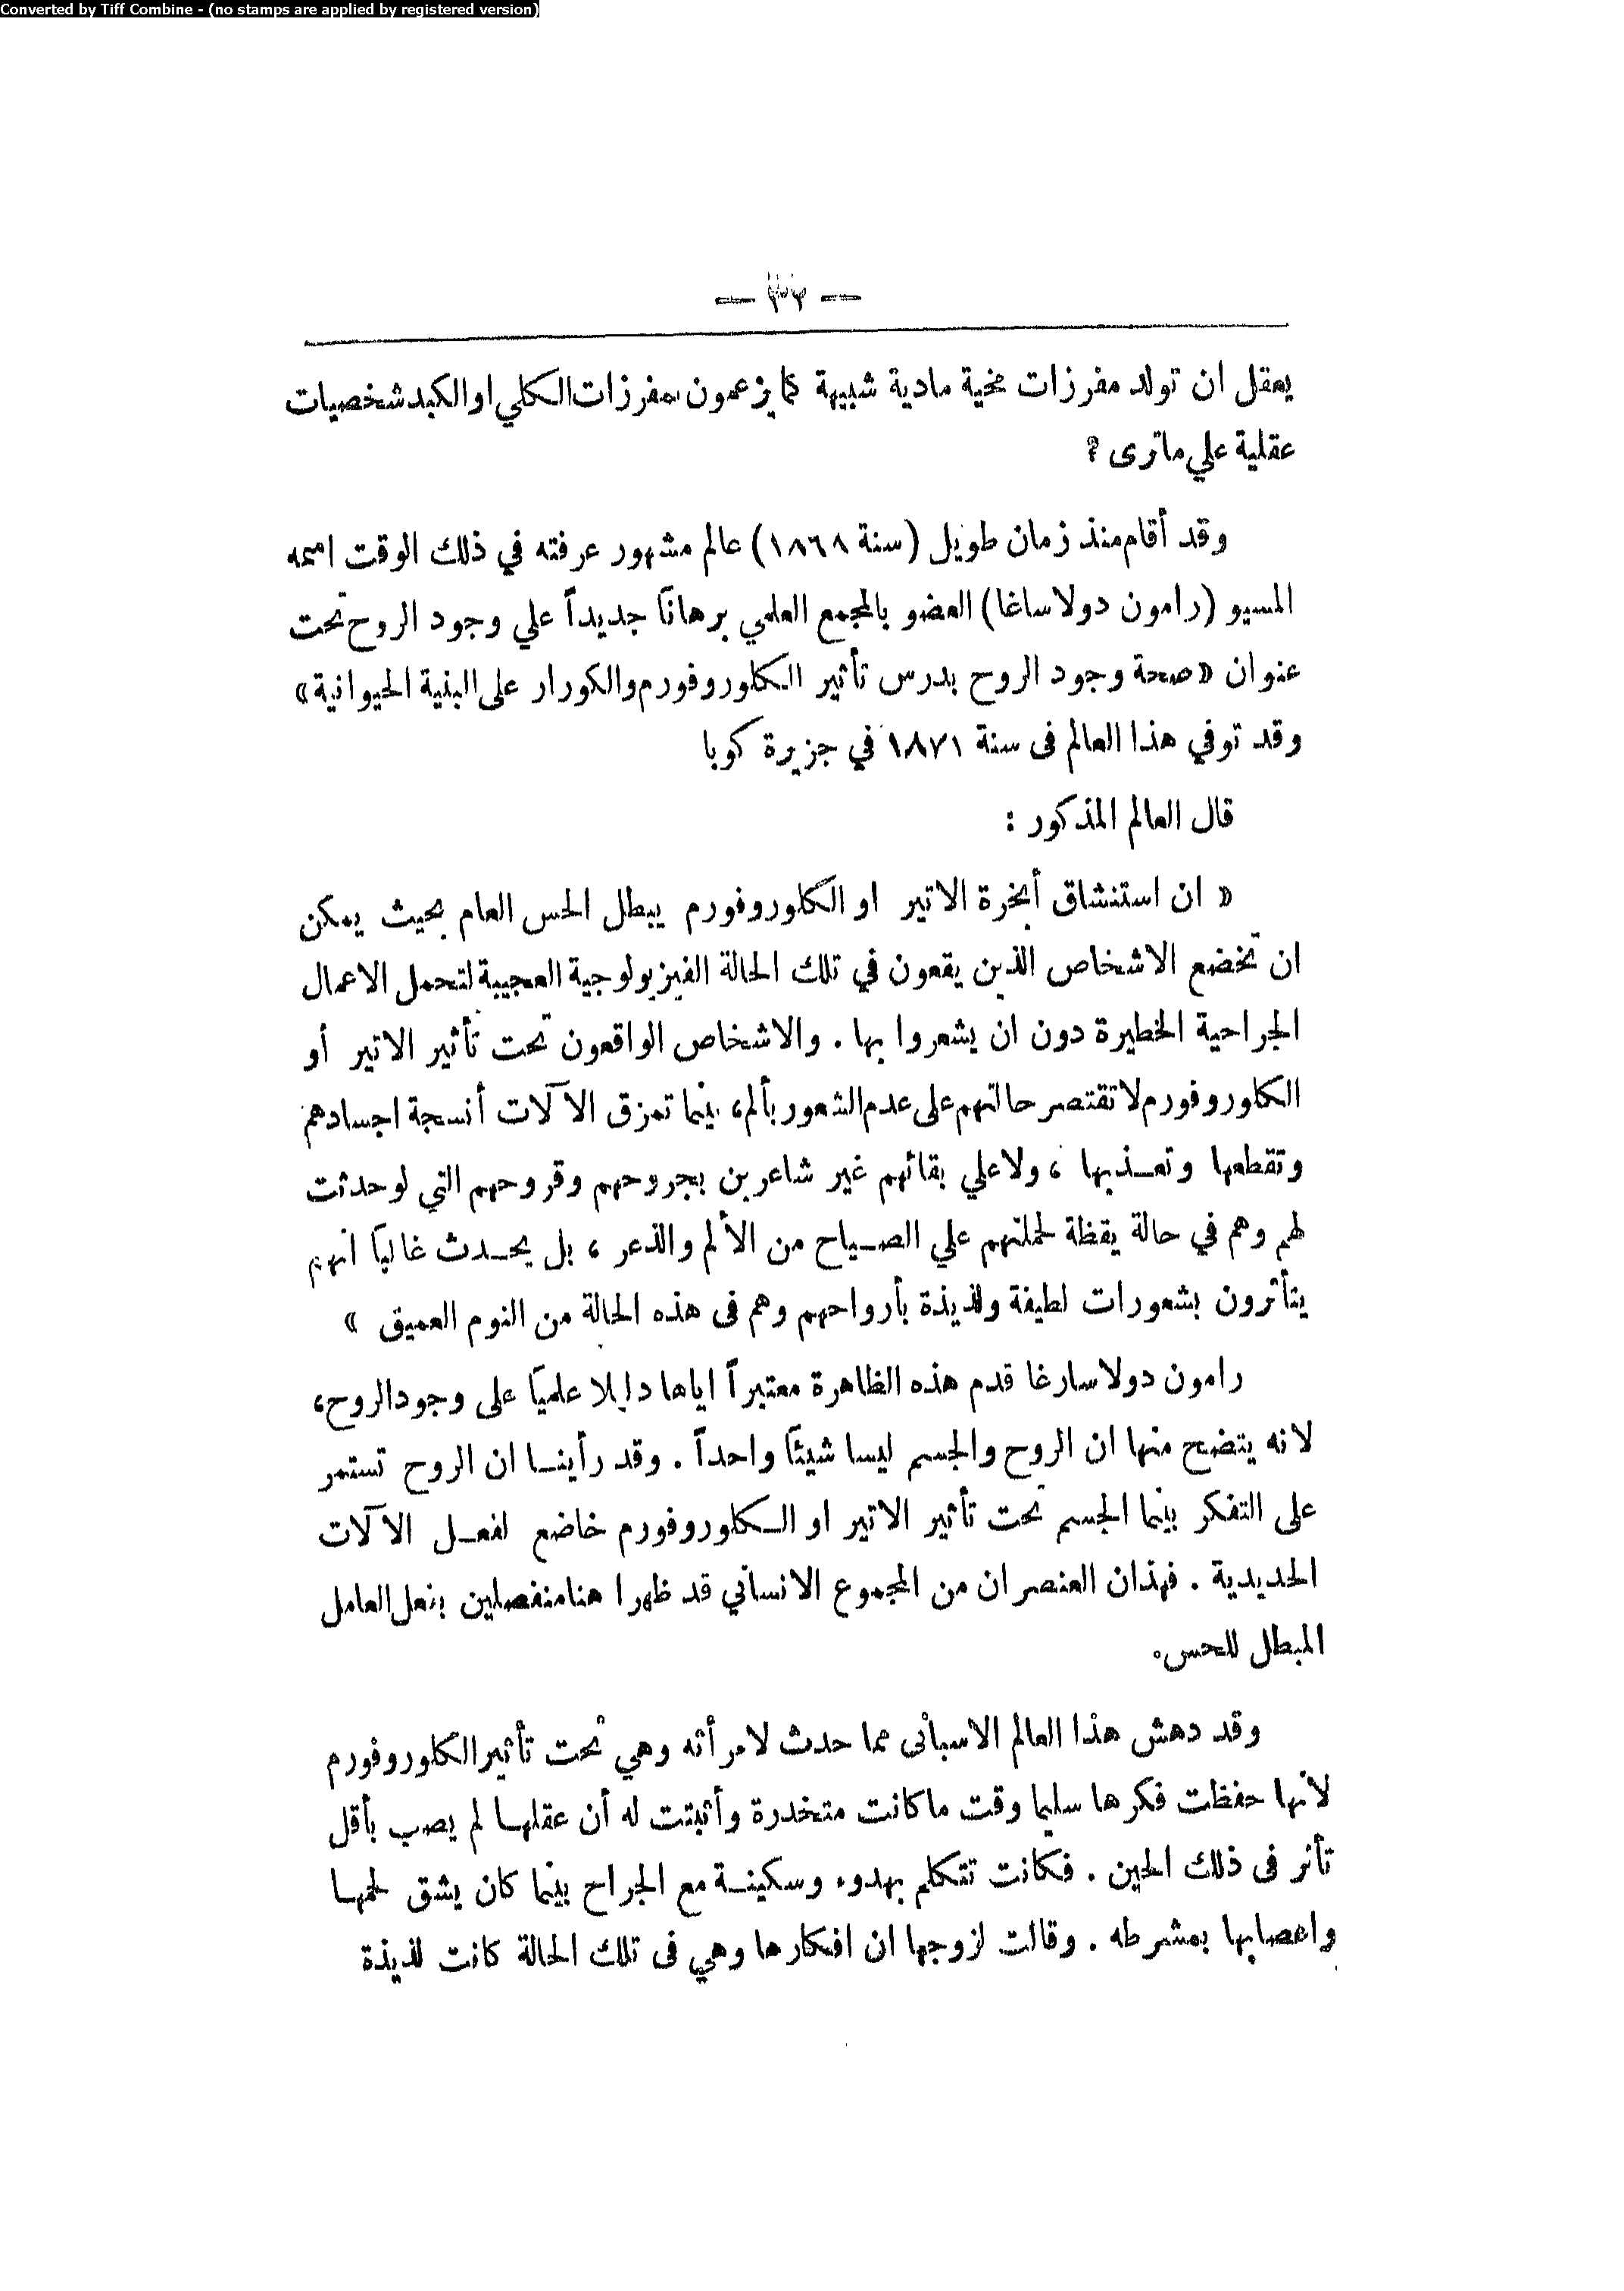 Converted by Tiff Combine - (no stamps are applied by registered version)
— ٣٢ —
يعقل ان تولد مفرزات مخية مادية شبيهة كما يزعمون بمفرزات الكلي او الكبد شخصيات
عقلية علي ماترى ؟
وقد أقام منذ زمان طويل (سنة ١٨٦٨) عالم مشهور عرفته في ذلك الوقت اسمه
المسيو (رامون دولاساغا) العضو بالمجمع العلمي برهانًا جديداً علي وجود الروح تحت
عنوان « صحة وجود الروح بدرس تأثير الكلوروفورم والكورار على البنية الحيوانية »
وقد توفي هذا العالم فى سنة ١٨٧١ في جزيرة كوبا
قال العالم المذكور :
« ان استنشاق أبخرة الاتير او الكلوروفورم يبطل الحس العام بحيث يمكن
ان تخضع الاشخاص الذين يقعون في تلك الحالة الفيزيولوجية العجيبة لتحمل الاعمال
الجراحية الخطيرة دون ان يشعروا بها . والاشخاص الواقعون تحت تأثير الاتير أو
الكلوروفورم لا تقتصر حالتهم على عدم الشعور بألم، بينما تمزق الآلات أنسجة اجسادهم
وتقطعها وتعـذبها ، ولا علي بقائهم غير شاعرين بجروحهم وقروحهم التي لو حدثت
لهم وهم في حالة يقظة لحملتهم علي الصـياح من الألم والذعر ، بل يحـدث غالبًا انهم
يتأثرون بشعورات لطيفة ولذيذة بأرواحهم وهم فى هذه الحالة من النوم العميق »
رامون دولاسارغا قدم هذه الظاهرة معتبراً اياها دليلا علميًا على وجود الروح،
لانه يتضح منها ان الروح والجسم ليسا شيئًا واحداً . وقد رأينـا ان الروح تستمر
على التفكر بينما الجسم تحت تأثير الاتير او الـكلوروفورم خاضع لفعـل الآلات
الحديدية . فهذان العنصران من المجموع الانساني قد ظهرا هنا منفصلين بفعل العامل
المبطل للحس.
وقد دهش هذا العالم الاسبانى مما حدث لامرأته وهي تحت تأثير الكلوروفورم
لانها حفظت فكرها سليما وقت ما كانت متخدرة وأثبتت له أن عقلهـا لم يصب بأقل
تأثر فى ذلك الحين . فكانت تتكلم بهدوء وسكينـة مع الجراح بينما كان يشق لحمهـا
واعصابها بمشرطه . وقالت لزوجها ان افكارها وهي فى تلك الحالة كانت لذيذة